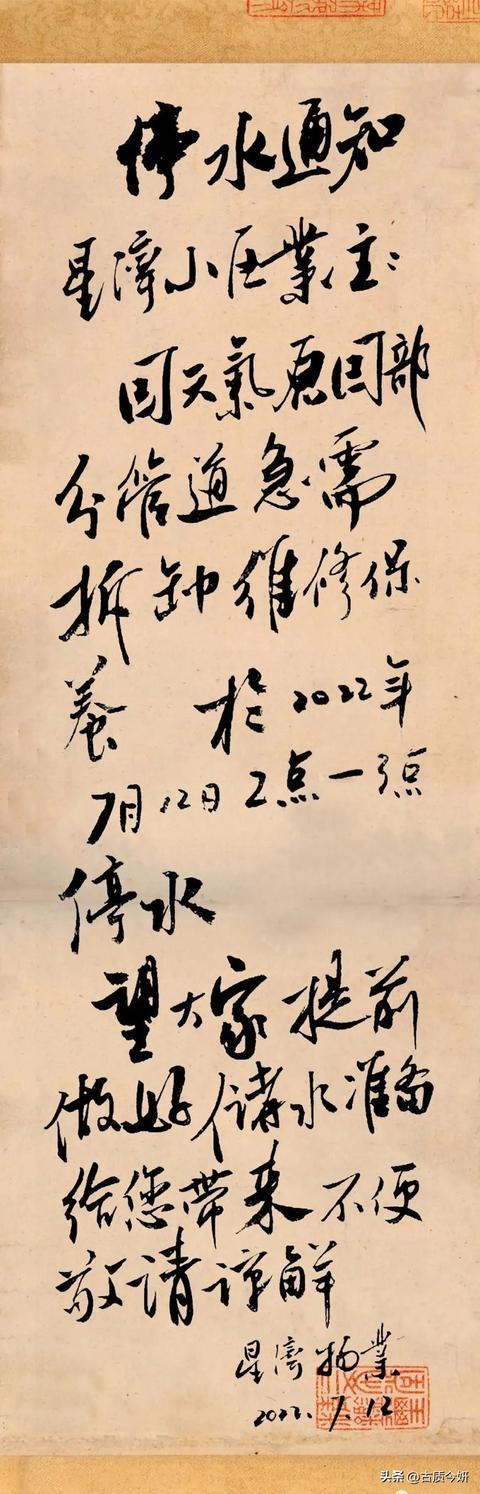 停水通知
星濟小区業主:
因天氣原因部
分管道急需
拆卸维修保
養 於2022年
7月12日2点一3点
停水
望大家提前
做好储水准备
给您帶来不便
敬请谅解
星濟物業
2022.7.12
头条@古质今妍